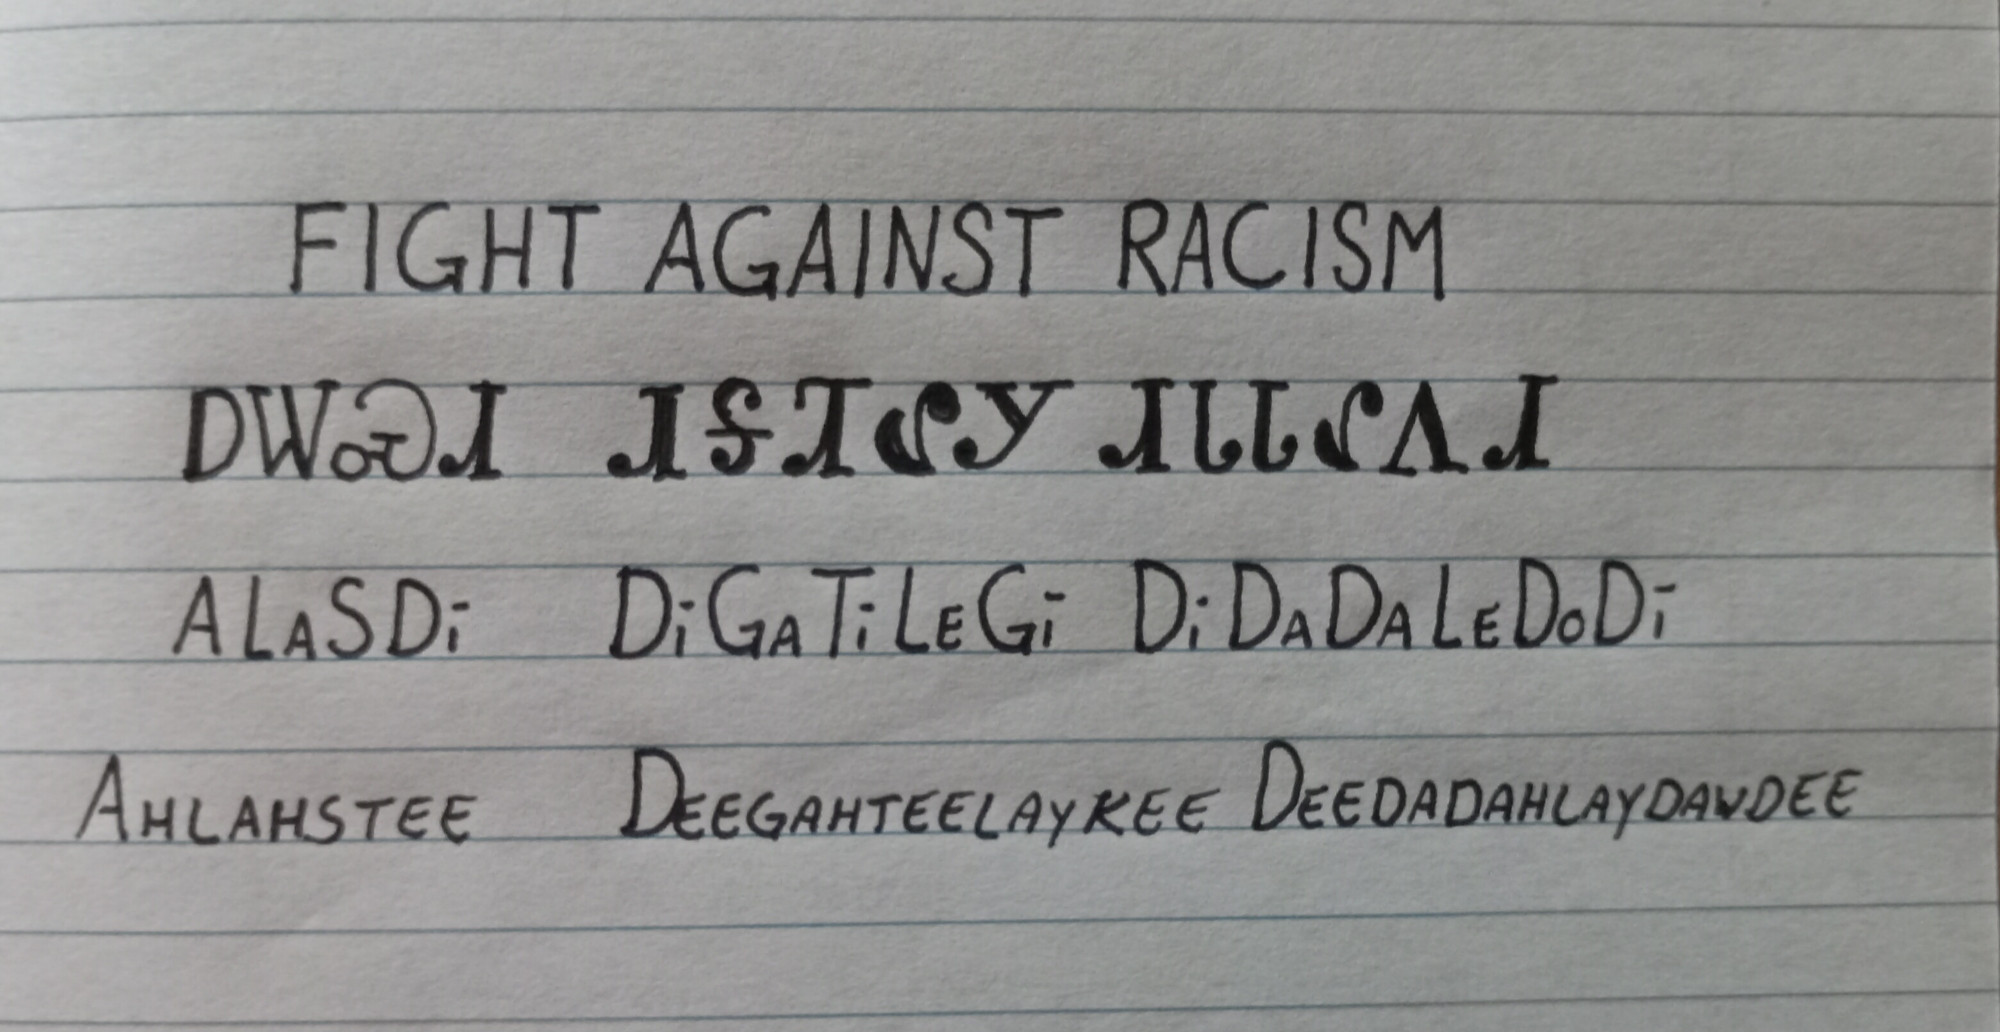 FIGHT AGAINST RACISM
ᎠᎳᏍᏗ ᏗᎦᏘᎴᎩ ᏗᏓᏓᎴᏙᏗ
ALASDi DiGATiLEGi DiDADALEDoDi
AHLAHSTEE DEEGAHTEELAYKEE DEEDADAHLAYDAWDEE